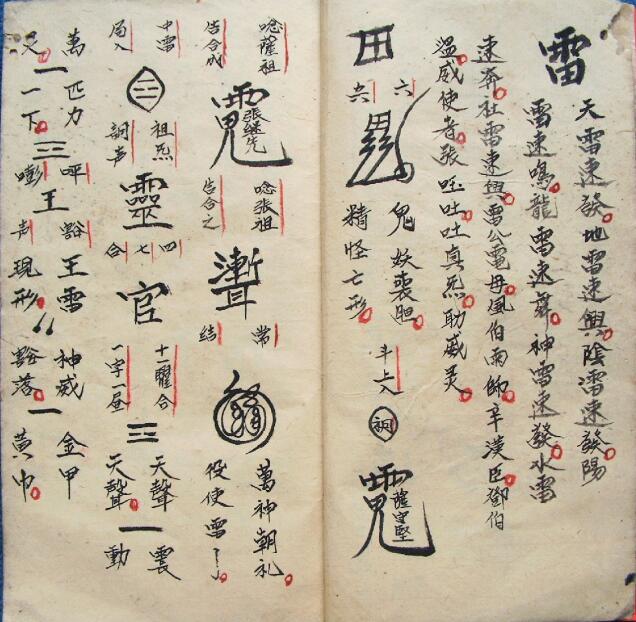 雷
天雷速發地雷速興陰雷速發陽
雷速鳴龍雷速舞神雷速發水雷
速奔社雷速興雷公電母風伯雨師辛漢臣鄧伯
溫威使者張𰁜吐吐真炁助威灵
田
六
鬼妖喪胆
精怪亡形
斗占入
薩守堅
唸薩祖
告合成
張継先
唸張祖
告合之
聻
常
結
萬神朝礼
役使雷了
中雷
局入
祖炁
詞声
靈
四
七
合
官
十一曜合
一字一屇
三
天聲
天聲
一
震
動
萬匹力
一
一下
三
呯
嘭
王
豁
声
王雷
現形
神威
豁落
一
金甲
黃巾